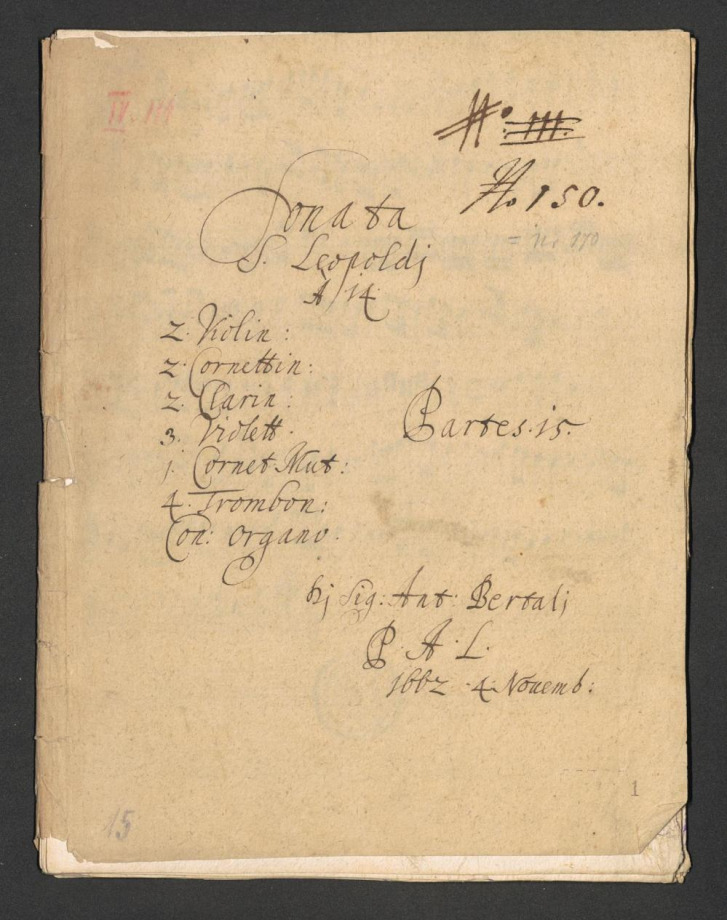 IV. 111
No: III.
No 150.
= No 170
Sonata
S. Leopoldj
A 14
2. Violin:
2. Cornettin:
2. Clarin:
3. Violett.
1. Cornet Mut:
4. Trombon:
Con: organo.
Partes. 15.
Sig: Ant: Bertalj
P. A. L.
1662 4. Nouemb:
1
15